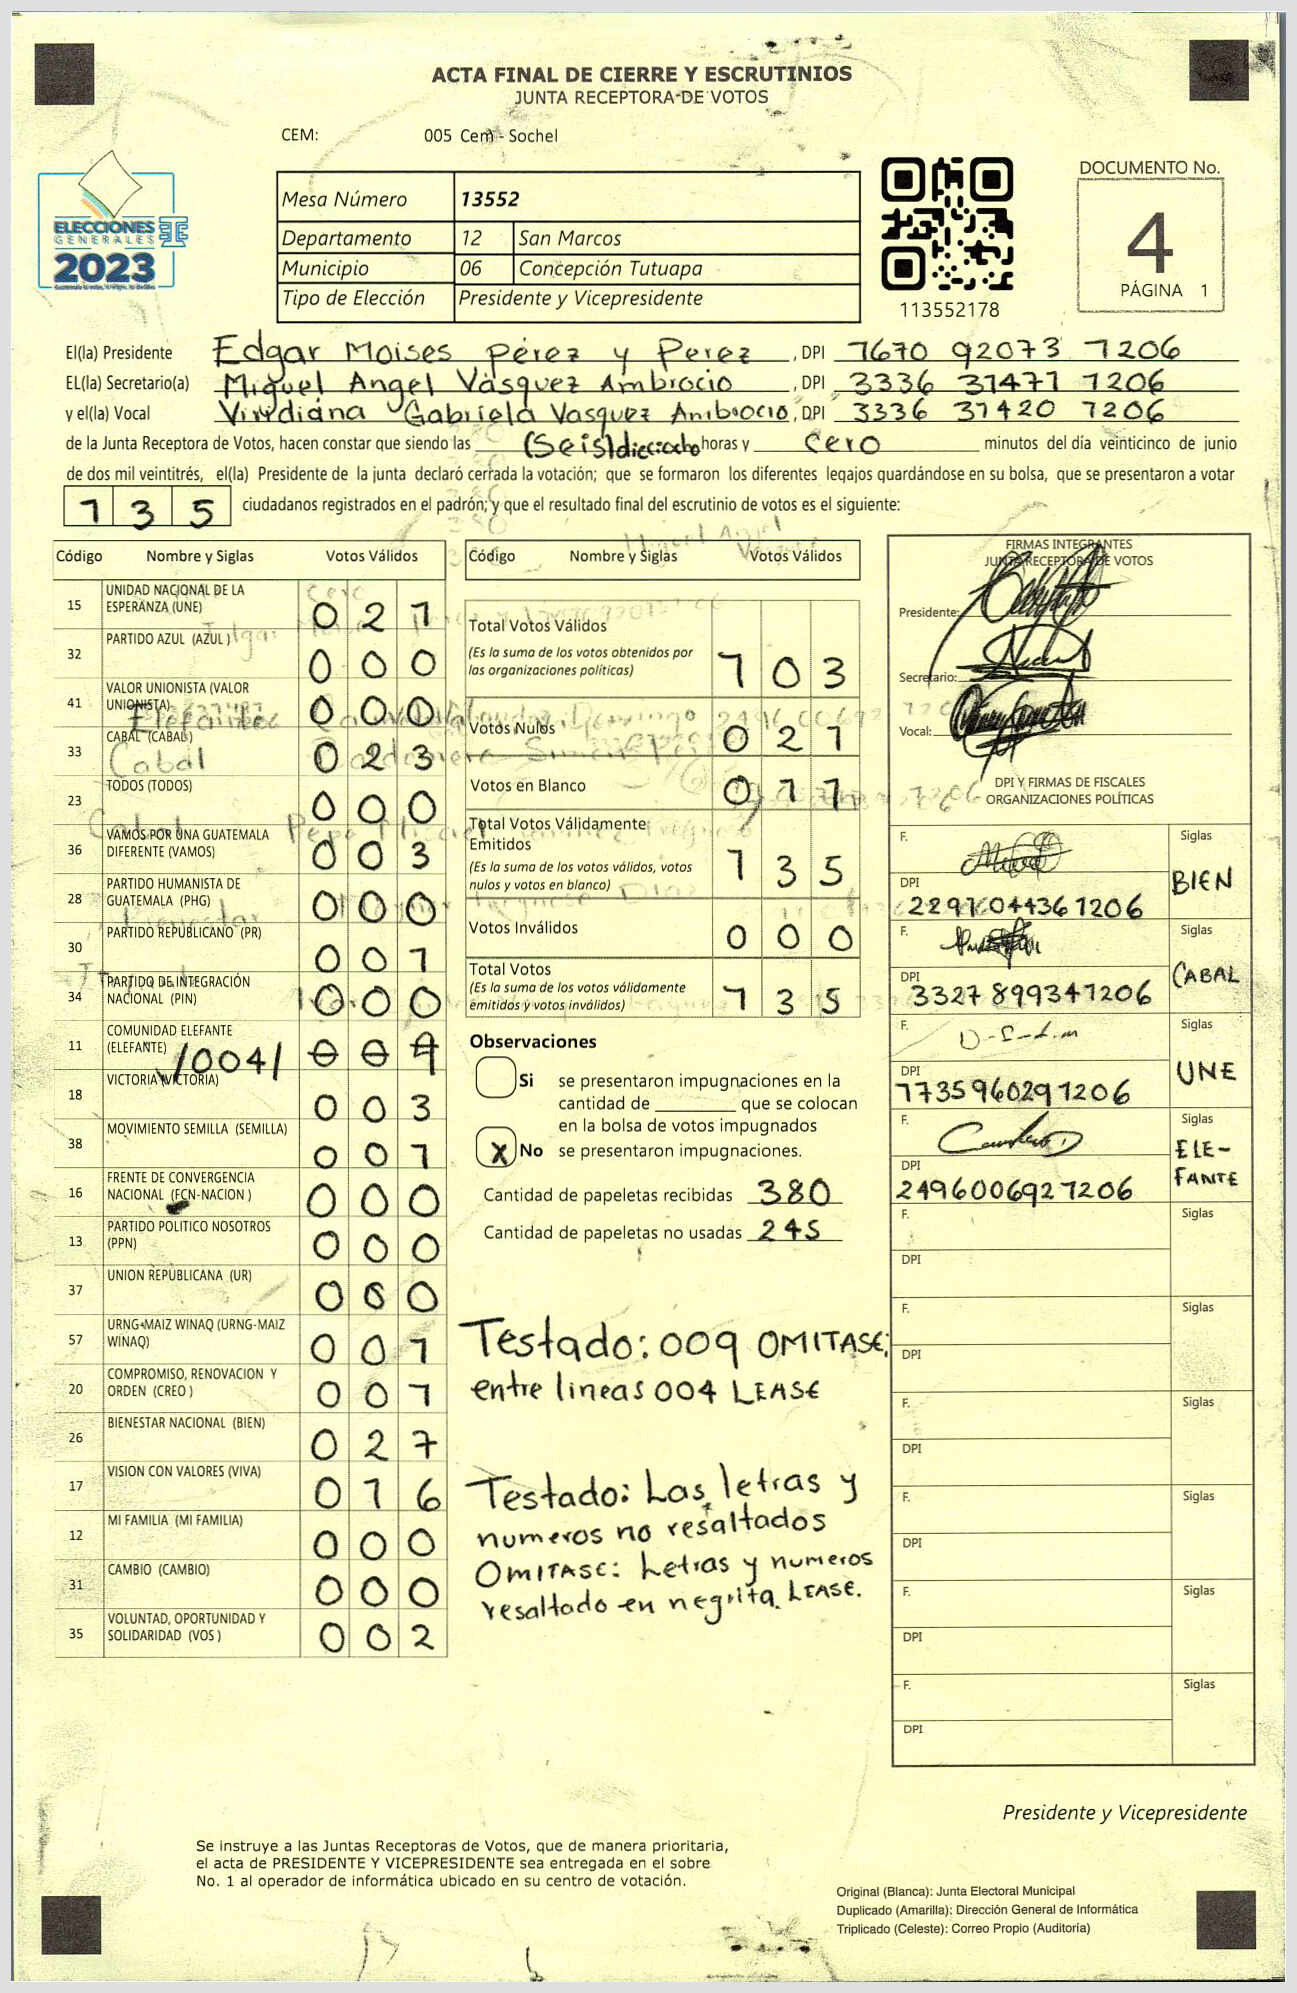 ACTA FINAL DE CIERRE Y ESCRUTINIOS
JUNTA RECEPTORA DE VOTOS
CEM: 005 Cem - Sochel
ELECCIONES
GENERALES
2023
Mesa Número 13552
Departamento 12 San Marcos
Municipio 06 Concepción Tutuapa
Tipo de Elección Presidente y Vicepresidente
113552178
DOCUMENTO No.
4
PÁGINA 1
El(la) Presidente Edgar Moises Pérez y Perez, DPI 1670 92073 1206
EL(la) Secretario(a) Miguel Angel Vásquez Ambrocio, DPI 3336 31471 1206
y el(la) Vocal Viridiana Gabriela Vasquez Ambrocio, DPI 3336 31420 1206
de la Junta Receptora de Votos, hacen constar que siendo las (Seis) dieciocho horas y cero minutos del día veinticinco de junio
de dos mil veintitrés, el(la) Presidente de la junta declaró cerrada la votación; que se formaron los diferentes legajos guardándose en su bolsa, que se presentaron a votar
135 ciudadanos registrados en el padrón; y que el resultado final del escrutinio de votos es el siguiente:
Código Nombre y Siglas Votos Válidos
15 UNIDAD NACIONAL DE LA ESPERANZA (UNE) 021
32 PARTIDO AZUL (AZUL) 000
41 VALOR UNIONISTA (VALOR UNIONISTA) 000
33 CABAL (CABAL) 023
23 TODOS (TODOS) 000
36 VAMOS POR UNA GUATEMALA DIFERENTE (VAMOS) 003
28 PARTIDO HUMANISTA DE GUATEMALA (PHG) 000
30 PARTIDO REPUBLICANO (PR) 001
34 PARTIDO DE INTEGRACIÓN NACIONAL (PIN) 000
11 COMUNIDAD ELEFANTE (ELEFANTE) /004/ 009
18 VICTORIA (VICTORIA) 003
38 MOVIMIENTO SEMILLA (SEMILLA) 001
16 FRENTE DE CONVERGENCIA NACIONAL (FCN-NACION) 000
13 PARTIDO POLITICO NOSOTROS (PPN) 000
37 UNION REPUBLICANA (UR) 000
57 URNG-MAIZ WINAQ (URNG-MAIZ WINAQ) 001
20 COMPROMISO, RENOVACION Y ORDEN (CREO) 001
26 BIENESTAR NACIONAL (BIEN) 027
17 VISION CON VALORES (VIVA) 016
12 MI FAMILIA (MI FAMILIA) 000
31 CAMBIO (CAMBIO) 000
35 VOLUNTAD, OPORTUNIDAD Y SOLIDARIDAD (VOS) 002
Código Nombre y Siglas Votos Válidos
Total Votos Válidos
(Es la suma de los votos obtenidos por
las organizaciones políticas) 103
Votos Nulos 021
Votos en Blanco 011
Total Votos Válidamente
Emitidos
(Es la suma de los votos válidos, votos
nulos y votos en blanco) 135
Votos Inválidos 000
Total Votos
(Es la suma de los votos válidamente
emitidos y votos inválidos) 135
Observaciones
Si se presentaron impugnaciones en la
cantidad de ________ que se colocan
en la bolsa de votos impugnados
X No se presentaron impugnaciones.
Cantidad de papeletas recibidas 380
Cantidad de papeletas no usadas 245
Testado: 009 OMITASE;
entre lineas 004 LEASE
Testado: Las letras y
numeros no resaltados
OMITASE: Letras y numeros
resaltado en negrita LEASE.
FIRMAS INTEGRANTES
JUNTA RECEPTORA DE VOTOS
Presidente:
Secretario:
Vocal:
DPI Y FIRMAS DE FISCALES
ORGANIZACIONES POLÍTICAS
F. Siglas
DPI BIEN
F. Siglas
DPI 3327 899341206 CABAL
F. Siglas
DPI 1735960291206 UNE
F. Siglas
DPI 2496006921206 ELE-
FANTE
F. Siglas
DPI
F. Siglas
DPI
F. Siglas
DPI
F. Siglas
DPI
F. Siglas
DPI
F. Siglas
DPI
Presidente y Vicepresidente
Se instruye a las Juntas Receptoras de Votos, que de manera prioritaria,
el acta de PRESIDENTE Y VICEPRESIDENTE sea entregada en el sobre
No. 1 al operador de informática ubicado en su centro de votación.
Original (Blanca): Junta Electoral Municipal
Duplicado (Amarilla): Dirección General de Informática
Triplicado (Celeste): Correo Propio (Auditoría)